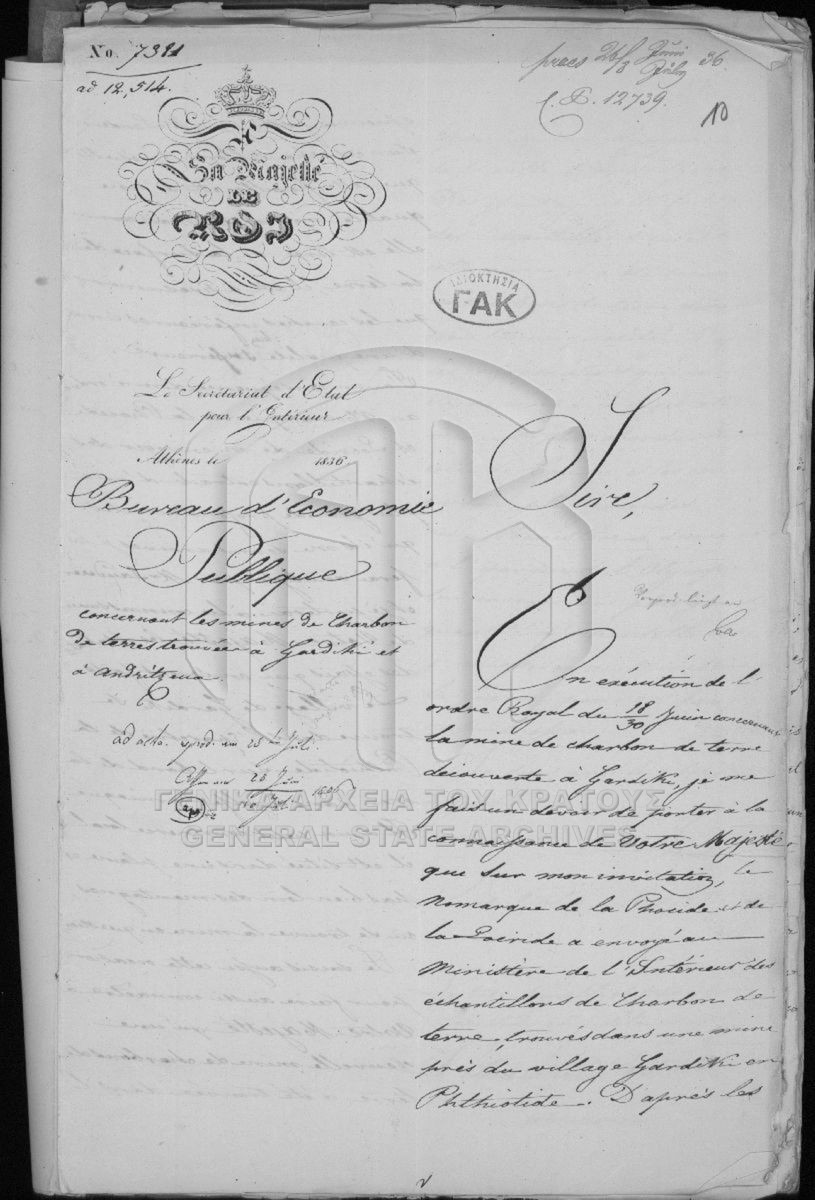 No. 7311
ad 12,514.
praes 26/8 Juni July 36
10
A
Sa Majesté
LE
ROI
ΙΔΙΟΚΤΗΣΙΑ
ΓΑΚ
Le Secrétariat d'Etat
pour l'Intérieur
Athènes le 1836
Bureau d'Economie
Publique
concernant les mines de Charbon
de terre trouvées à Gardiki et
à Andritzena.
ad acta. 25
Sire,
En exécution de l'
ordre Royal du 18/30 Juin concernant
la mine de charbon de terre
découverte à Gardiki, je me
fais un devoir de porter à la
connaissance de Votre Majesté
que sur mon invitation, le
Nomarque de la Phocide et de
la Locride a envoyé au
Ministère de l'Intérieur des
échantillons de Charbon de
terre, trouvés dans une mine
près du village Gardiki en
Phthiotide. D'après les
ΓΕΝΙΚΑ ΑΡΧΕΙΑ ΤΟΥ ΚΡΑΤΟΥΣ
GENERAL STATE ARCHIVES